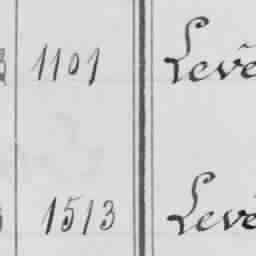 1101 Levê
1513 Levê